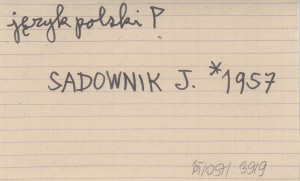 język polski P
SADOWNIK J. *1957